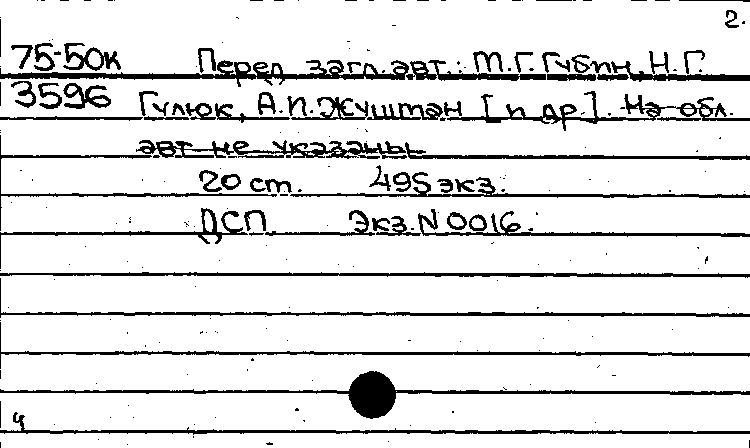 2.
75-50к Перед загл. авт.: М.Г. Губин, Н.Г.
3596 Гулюк, А.П. Жуштан [и др.]. На обл.
авт. не указаны.
20 ст. 495 экз.
ДСП. Экз. N 0016.
4